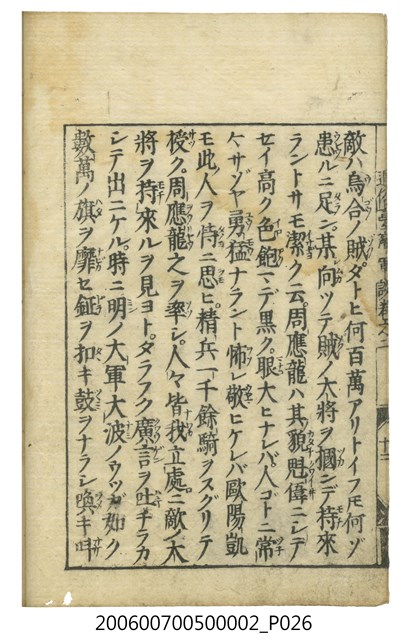 敵ハ烏合ノ賊ダトヒ何百萬アリトイフモ何ゾ
患ルニ足ン某向ツテ賊ノ大將ヲ摑ンデ持來
ラントサモ潔ク云周應龍ハ其貌魁偉ニシデ
セイ高ク色飽マデ黒ク眼大ヒナレバ人ゴトニ常
ケサゾヤ勇猛ナラント怖レ敬ヒケレバ歐陽凱
モ此人ヲ恃ニ思ヒ精兵一千餘騎ヲスグリテ
授ク周應龍之ヲ率シ人々皆我立處ニ敵ノ大
將ヲ持來ルヲ見ヨトダラフク廣言ヲ吐チラカ
シテ出ニケル時ニ明ノ大軍大波ノウツガ如ク
數萬ノ旗ヲ靡セ鉦ヲ扣キ鼓ヲナラシ喚キ叫
200600700500002_P026